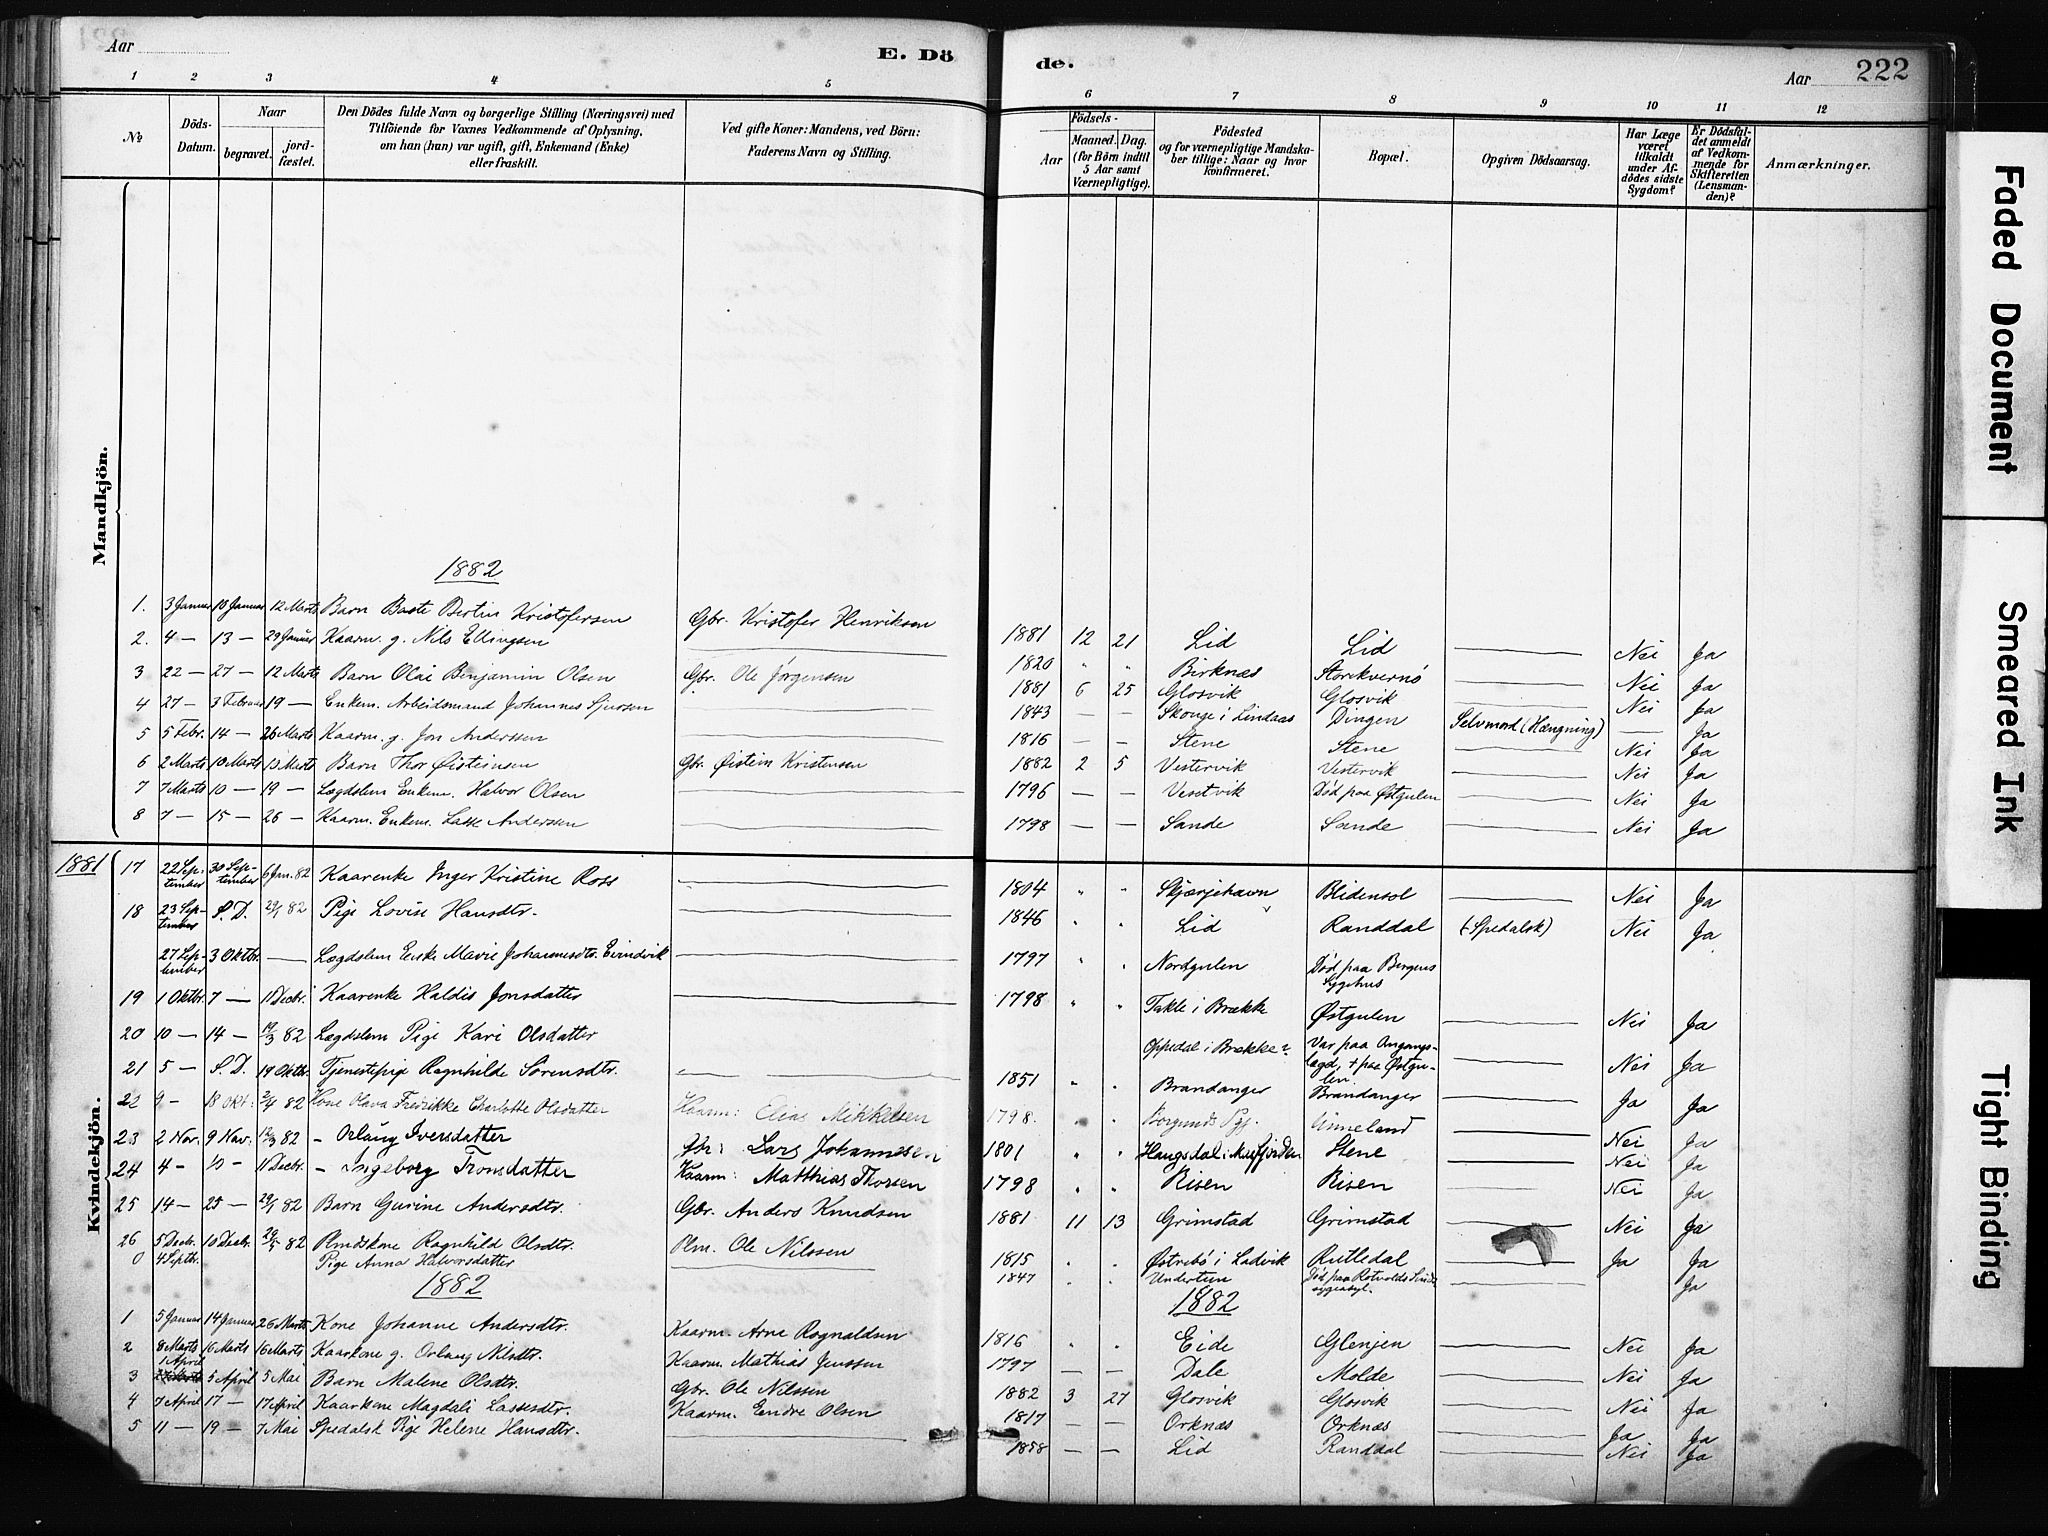 Aar
E. Dö
de.
Aar
222
1 2 3 4 5 6 7 8 9 10 11 12
№
Döds-Datum.
Naar
begravet.
jord-fæstet.
Den Dödes fulde Navn og borgerlige Stilling (Næringsvei) med
Tilföiende for Voxnes Vedkommende af Oplysning,
om han (hun) var ugift, gift, Enkemand (Enke)
eller fraskilt.
Ved gifte Koner: Mandens, ved Börn:
Faderens Navn og Stilling.
Födsels-
Aar
Maaned. Dag.
(for Börn indtil
5 Aar samt
Værnepligtige).
Födested
og for værnepligtige Mandska-
ber tillige: Naar og hvor
konfirmeret.
Bopæl.
Opgiven Dödsaarsag.
Har Læge
været
tilkaldt
under Af-
dödes sidste
Sygdom?
Er Dödsfal-
det anmeldt
af Vedkom-
mende for
Skifteretten
(Lensman-
den)?
Anmærkninger.
Mandkjön.
1882
1. 3 Januar 10 Januar 12 Marts Barn Baste Bertin Kristofersen Gbr. Kristofer Henriksen 1881 12 21 Lid Lid — Nei Ja
2. 4 — 13 — 29 Januar Kaarm. g. Nils Ellingsen — 1820 " " Birknæs Storekvernø — Nei Ja
3 22 — 27 — 12 Marts Barn Olai Benjamin Olsen Gbr. Ole Jørgensen 1881 6 25 Glosvik Glosvik — Nei Ja
4 27 — 3 Februar 19 — Enkem. Arbeidsmand Johannes Sjursen — 1843 — — Skouge i Lindaas Dingen Selvmord (Hængning) — Ja
5 5 Febr. 14 — 26 Marts Kaarm. g. Jon Anderssen — 1816 — — Stene Stene — Nei Ja
6 2 Marts 10 Marts 10 Marts Barn Thor Øisteinsen Gbr. Øistein Kristensen 1882 2 5 Vestervik Vestervik — Nei Ja
7 7 Marts 10 — 19 — Lægdslem Enkem. Halvor Olsen — 1796 — — Vesetvik Død paa Østgulen — Nei Ja
8 7 — 15 — 26 — Kaarm. Enkem. Lasse Anderssen — 1798 — — Sande Sande — Nei Ja
Kvindekjön.
1881
17 22 September 30 September 6 Jan. 82 Kaarenke Inger Kristine Ross — 1804 " " Skjærjehavn Blidensol — Nei Ja
18 23 September S. D. 29/1 82 Pige Lovise Hansdtr. — 1846 " " Lid Randdal (Spedalsk) Nei Ja
27 September 3 Oktbr. — Lægdslem Enke Marie Johannesdtr. Evindvik — 1797 " " Nordgulen Død paa Bergens Sygehus
19 1 Oktbr. 7 — 11 Decbr. Kaarenke Haldis Jonsdatter — 1798 " " Takle i Brække Østgulen — Nei Ja
20 10 — 14 — 19/3 82 Lægdslem Pige Kari Olsdatter Oppedal i Brekke? Var paa Omgangslægd, + paa Østgulen — Nei Ja
21 5 — S. D. 19 Oktbr. Tjenestepige Ragnhilde Sørensdtr. — 1851 " " Brandanger Brandanger — Ja Ja
22 9 — 18 Okt. 2/4 82 Kone Olava Fredrikke Charlotte Olsdatter Kaarm: Elias Mikkelsen 1798 " " Borgunds Pgj. Unneland — Nei Ja
23 2 Nov. 9 Nov. 12/3 82 — Orlaug Iversdatter Gbr: Lars Johannesen 1801 " " Haugsdal i Masfjorden Stene — Nei Ja
24 4 — 10 — 11 Decbr. — Ingeborg Tronsdatter Kaarm: Matthias Thorsen 1798 " " Risen Risen — Nei Ja
25 14 — 25 — 29/1 82 Barn Gurine Andersdtr. Gbr. Anders Knudsen 1881 11 13 Grimstad Grimstad — Nei Ja
26 5 Decbr. 10 Decbr. 82 Plmdskone Ragnhild Olsdtr. Plm. Ole Nilssen 1815 " " Østrebø i Ladvik Rutledal — Ja Ja
0 4 Septbr. Pige Anna Halvorsdatter — 1847 " " Undertun Død paa Rotvolds Sindssygeasyl. — Ja
1882 1882
1 5 Januar 14 Januar 26 Marts Kone Johanne Andersdtr. Kaarm. Arne Ragnaldsen 1816 " " Eide Glenjen — Nei Ja
2 8 Marts 16 Marts 16 Marts Kaarkone g. Orlaug Nilsdtr. Kaarm. Mathias Jenssen 1797 — — Dale Molde — Nei Ja
3 1 April 5 April 5 Mai Barn Malene Olsdtr. Gbr. Ole Nilssen 1882 3 27 Glosvik Glosvik — Nei Ja
4 7 April 17 — 17 April Kaarkone Magdali Lassesdtr. Kaarm. Endre Olsen 1817 — — Orknæs Orknæs — Ja Ja
5 11 — 19 — 7 Mai Spedalsk Pige Helene Hansdtr. — 1858 — — Lid Randdal — Nei Ja
Faded Document
Smeared Ink
Tight Binding